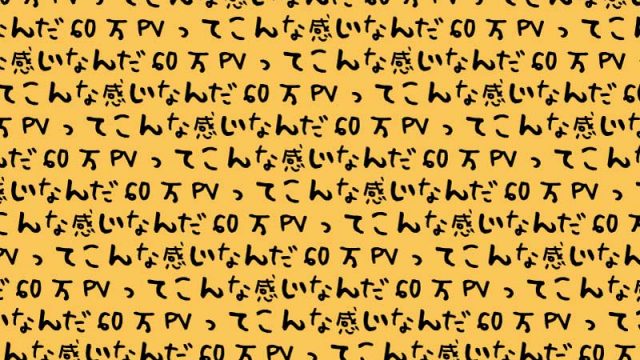 んだ60万PVってこんな感じなんだ60万PVってこ
な感じなんだ60万PVってこんな感じなんだ60
てこんな感じなんだ60万PVってこんな感じなんだ60
万PVってこんな感じなんだ60万PVってこんな感じ
んだ60万PVってこんな感じなんだ60万PVってこん
感じなんだ60万PVってこんな感じなんだ60万
こんな感じなんだ60万PVってこんな感じなんだ60
PVってこんな感じなんだ60万PVってこんな感じなん
60万PVってこんな感じなんだ60万PVってこんな
じなんだ60万PVってこんな感じなんだ60万PV
んな感じなんだ60万PVってこんな感じなんだ60万